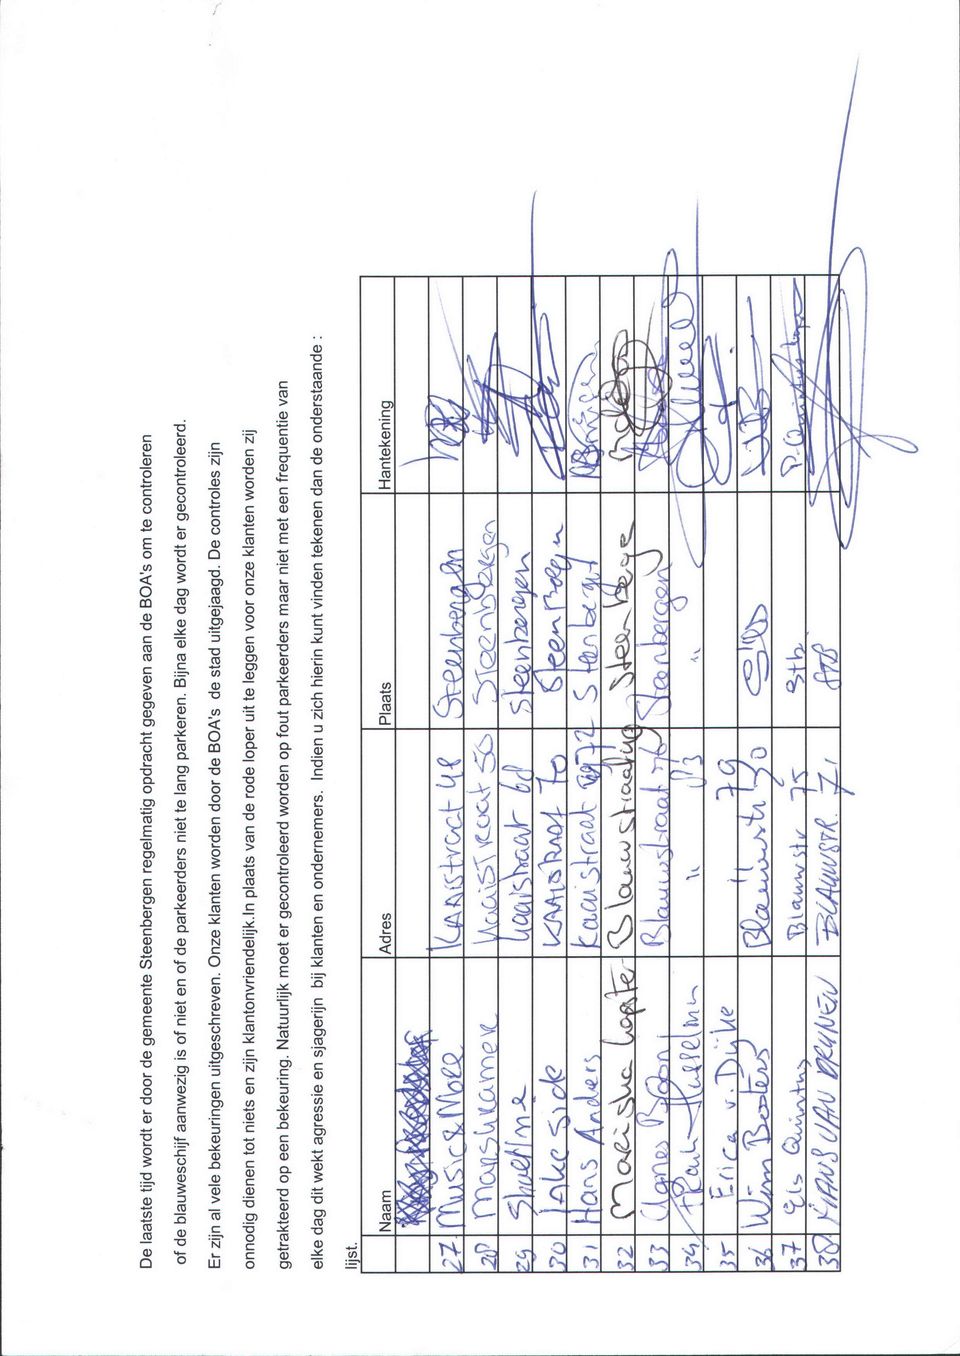 De laatste tijd wordt er door de gemeente Steenbergen regelmatig opdracht gegeven aan de BOA's om te controleren
of de blauweschijf aanwezig is of niet en of de parkeerders niet te lang parkeren. Bijna elke dag wordt er gecontroleerd.
Er zijn al vele bekeuringen uitgeschreven. Onze klanten worden door de BOA's de stad uitgejaagd. De controles zijn
onnodig dienen tot niets en zijn klantonvriendelijk.In plaats van de rode loper uit te leggen voor onze klanten worden zij
getrakteerd op een bekeuring. Natuurlijk moet er gecontroleerd worden op fout parkeerders maar niet met een frequentie van
elke dag dit wekt agressie en sjagerijn bij klanten en ondernemers. Indien u zich hierin kunt vinden tekenen dan de onderstaande :
lijst.
Naam Adres Plaats Hantekening
27. Music & More KAAIstraat 48 Steenbergen
28 Manskamer KaaiSTRaat 50 STeenBergen
29 Shoetime kaaistraat 60 Steenbergen
30 Lake Side KAAISTRAAT 70 Steenbergen
31 Hans Anders Kaaistraat 72 Steenbergen
32 Mariska Blauwstraat Steenberge
33 Agnes Blauwstraat 76 Steenbergen
34 " 83 "
35 Erica v. Dijke 79
36 Wim Blauwstr 30
37 Els Quintus Blauwstr 75 Stb.
38. HANS VAN DRUNEN BLAUWSTR. 71 STB